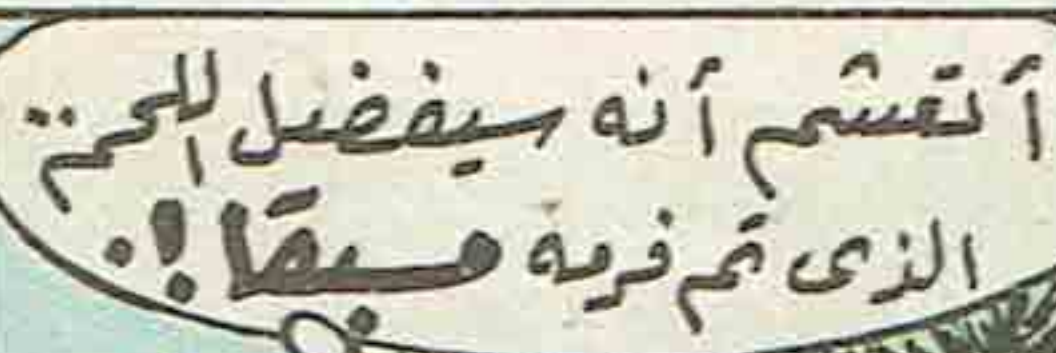 أتعشم أنه سيفضل اللحم..
الذى تم فرمه مسبقا!.